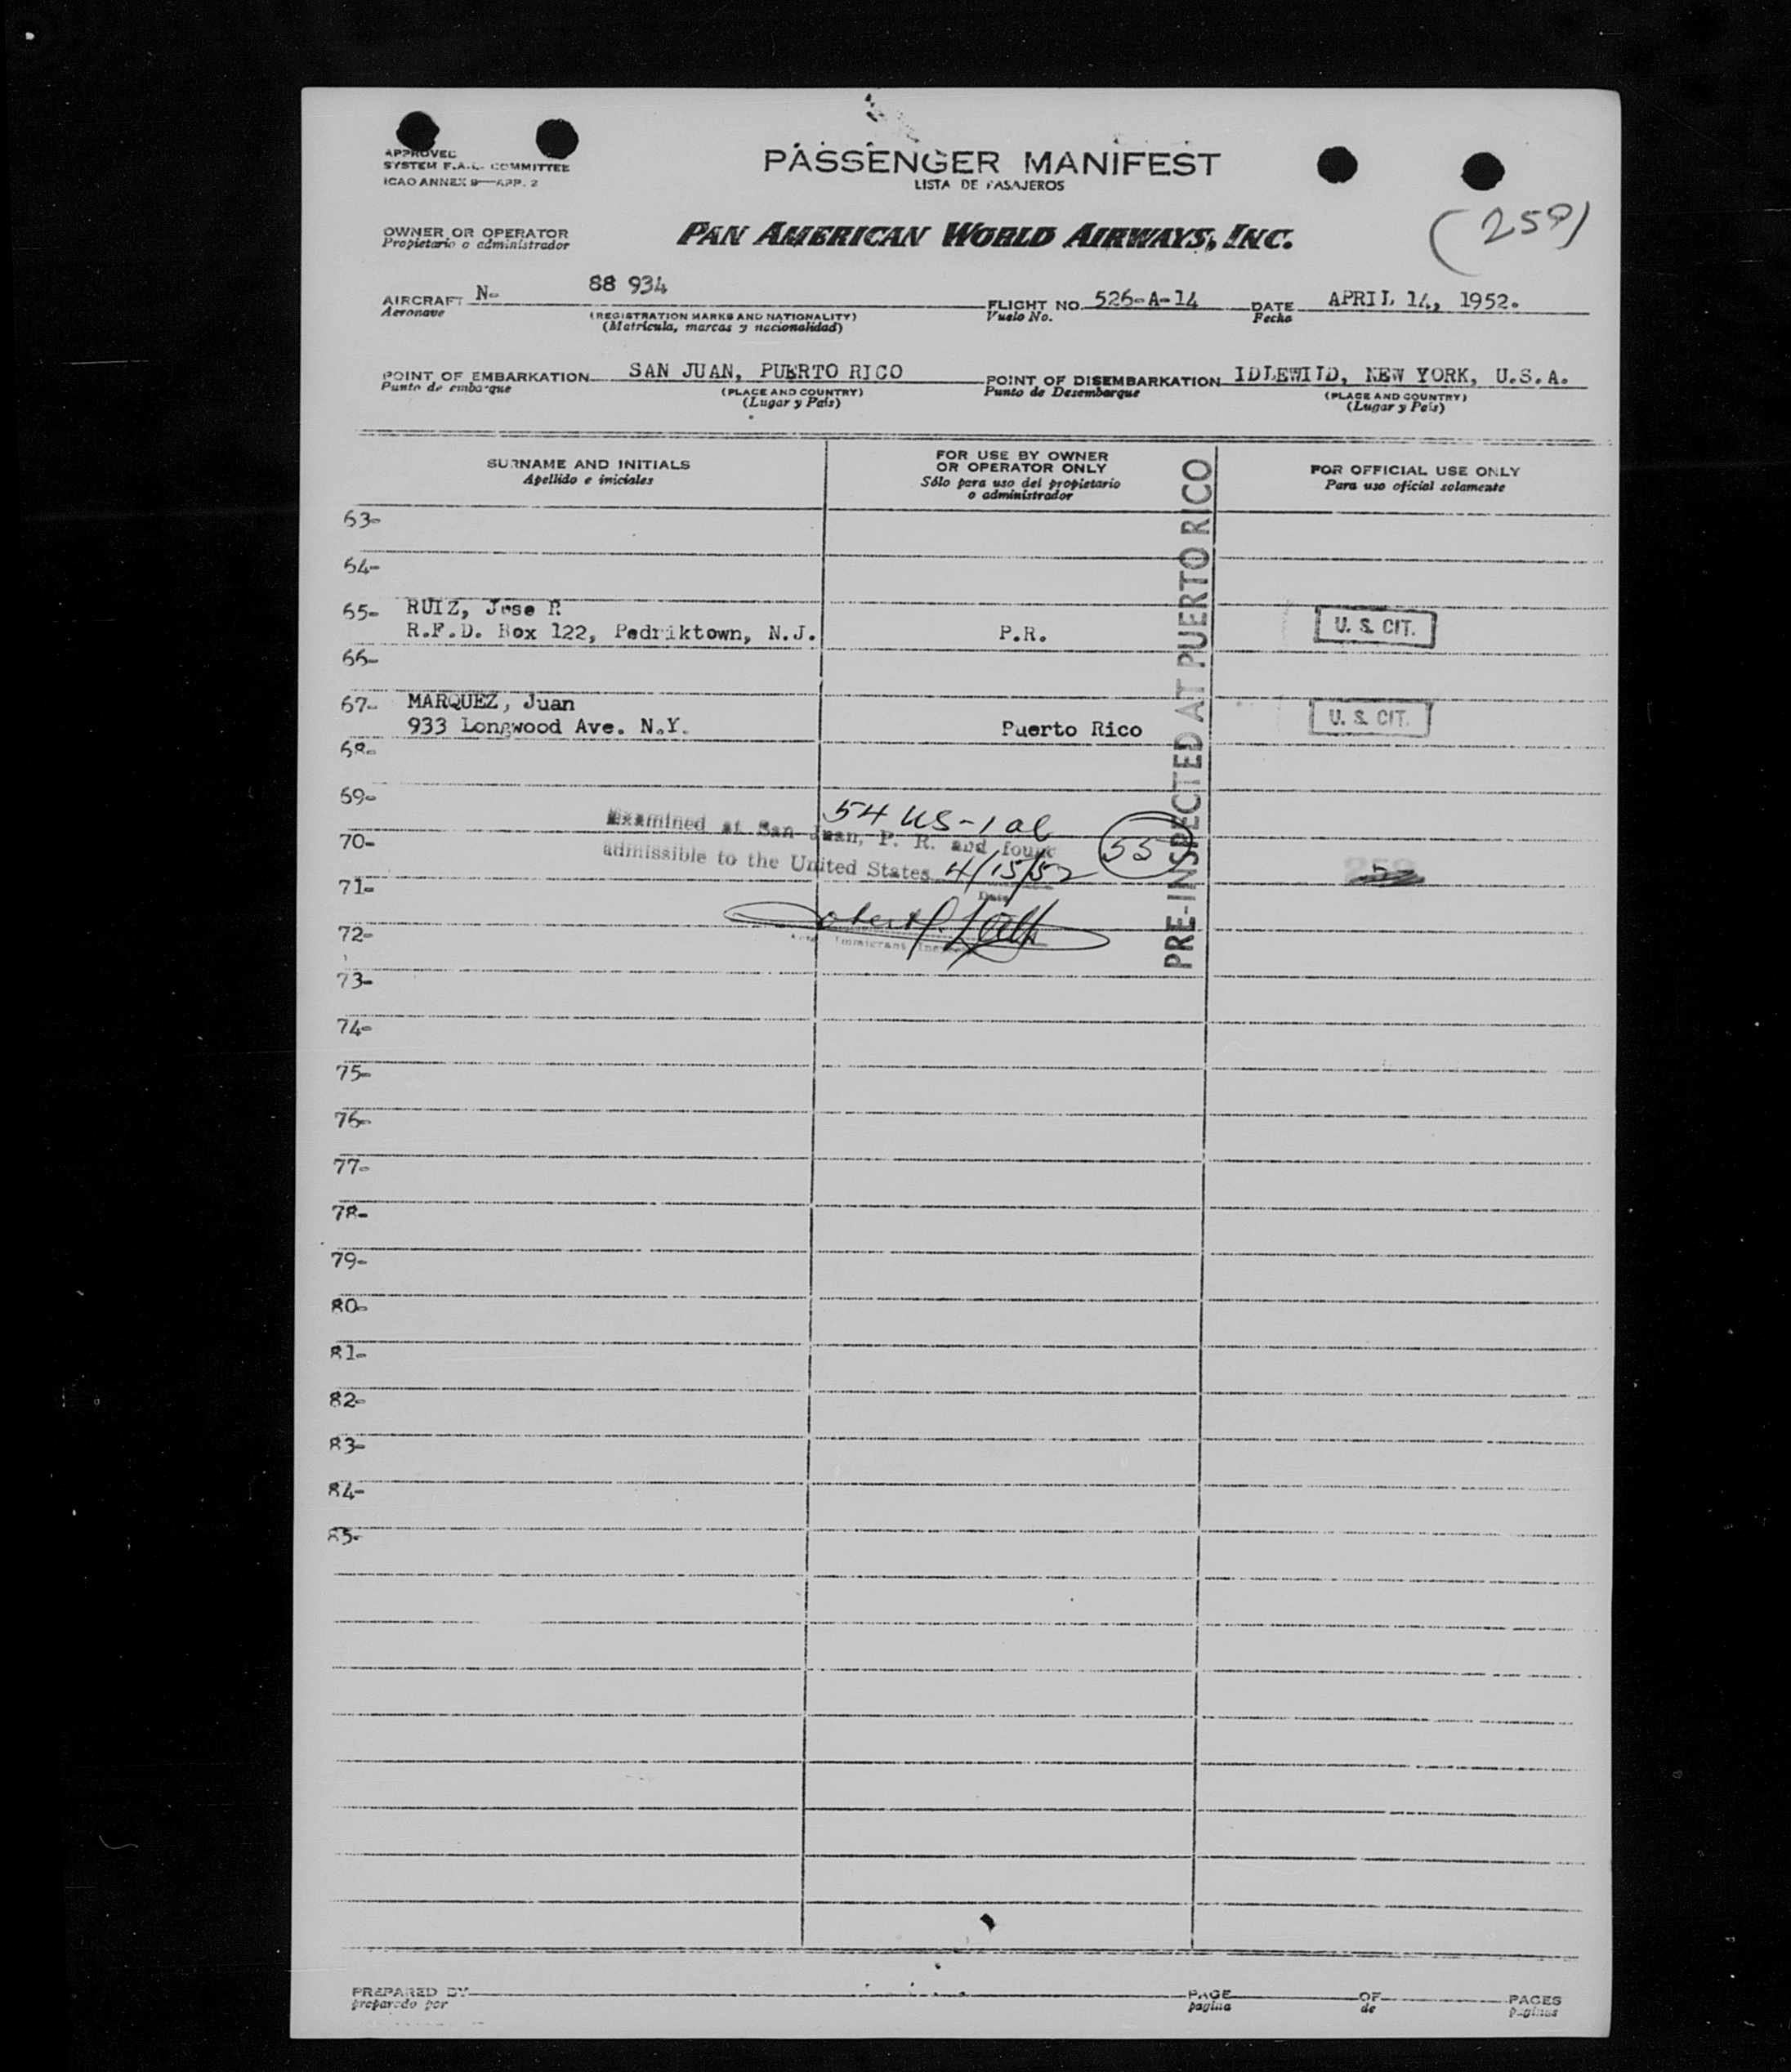 APPROVED
SYSTEM F.A.L. COMMITTEE
ICAO ANNEX 9—APP. 2
PASSENGER MANIFEST
LISTA DE PASAJEROS
(259)
OWNER OR OPERATOR
Propietario o administrador
PAN AMERICAN WORLD AIRWAYS, INC.
AIRCRAFT N- 88 934 FLIGHT NO. 526-A-14 DATE APRIL 14, 1952.
Aeronave (REGISTRATION MARKS AND NATIONALITY) Vuelo No. Fecha
(Matrícula, marcas y nacionalidad)
POINT OF EMBARKATION SAN JUAN, PUERTO RICO POINT OF DISEMBARKATION IDLEWILD, NEW YORK, U.S.A.
Punto de embarque (PLACE AND COUNTRY) Punto de Desembarque (PLACE AND COUNTRY)
(Lugar y País) (Lugar y País)
SURNAME AND INITIALS
Apellido e iniciales
FOR USE BY OWNER
OR OPERATOR ONLY
Sólo para uso del propietario
o administrador
FOR OFFICIAL USE ONLY
Para uso oficial solamente
PRE-INSPECTED AT PUERTO RICO
63-
64-
65- RUIZ, Jose R
R.F.D. Box 122, Pedriktown, N.J. P.R. U. S. CIT.
66-
67- MARQUEZ, Juan
933 Longwood Ave. N.Y. Puerto Rico U. S. CIT.
68-
69-
54 US-1 al
70- Examined at San Juan, P. R. and found (55)
admissible to the United States 4/15/52
71-
Date
72-
Immigrant
73-
74-
75-
76-
77-
78-
79-
80-
81-
82-
83-
84-
85-
PREPARED BY PAGE OF PAGES
preparado por pagina de paginas